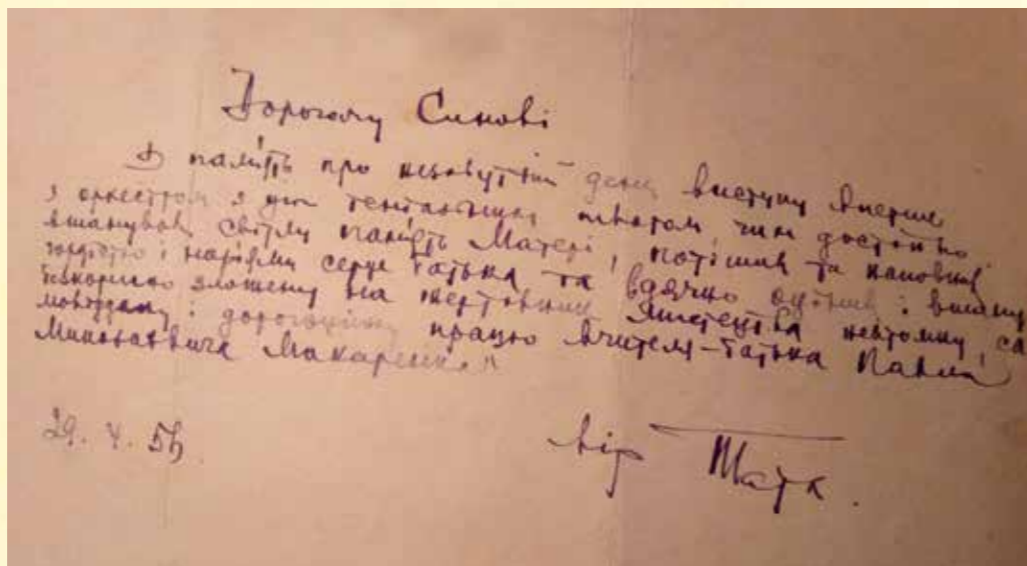 Дорогому Синові
В пам'ять про незабутній день виступу вперше
з оркестром з цим чим достойно
вшанував світлу пам'ять Матері, потішив та наповнив
гордістю і серце батька та вдячно оцінив і
безкорисно зложену на жертовник мистецтва невтомну, са
мовіддану і дорогоцінну працю вчителя-батька Павла
Макаренка"
29. 56
Тато.